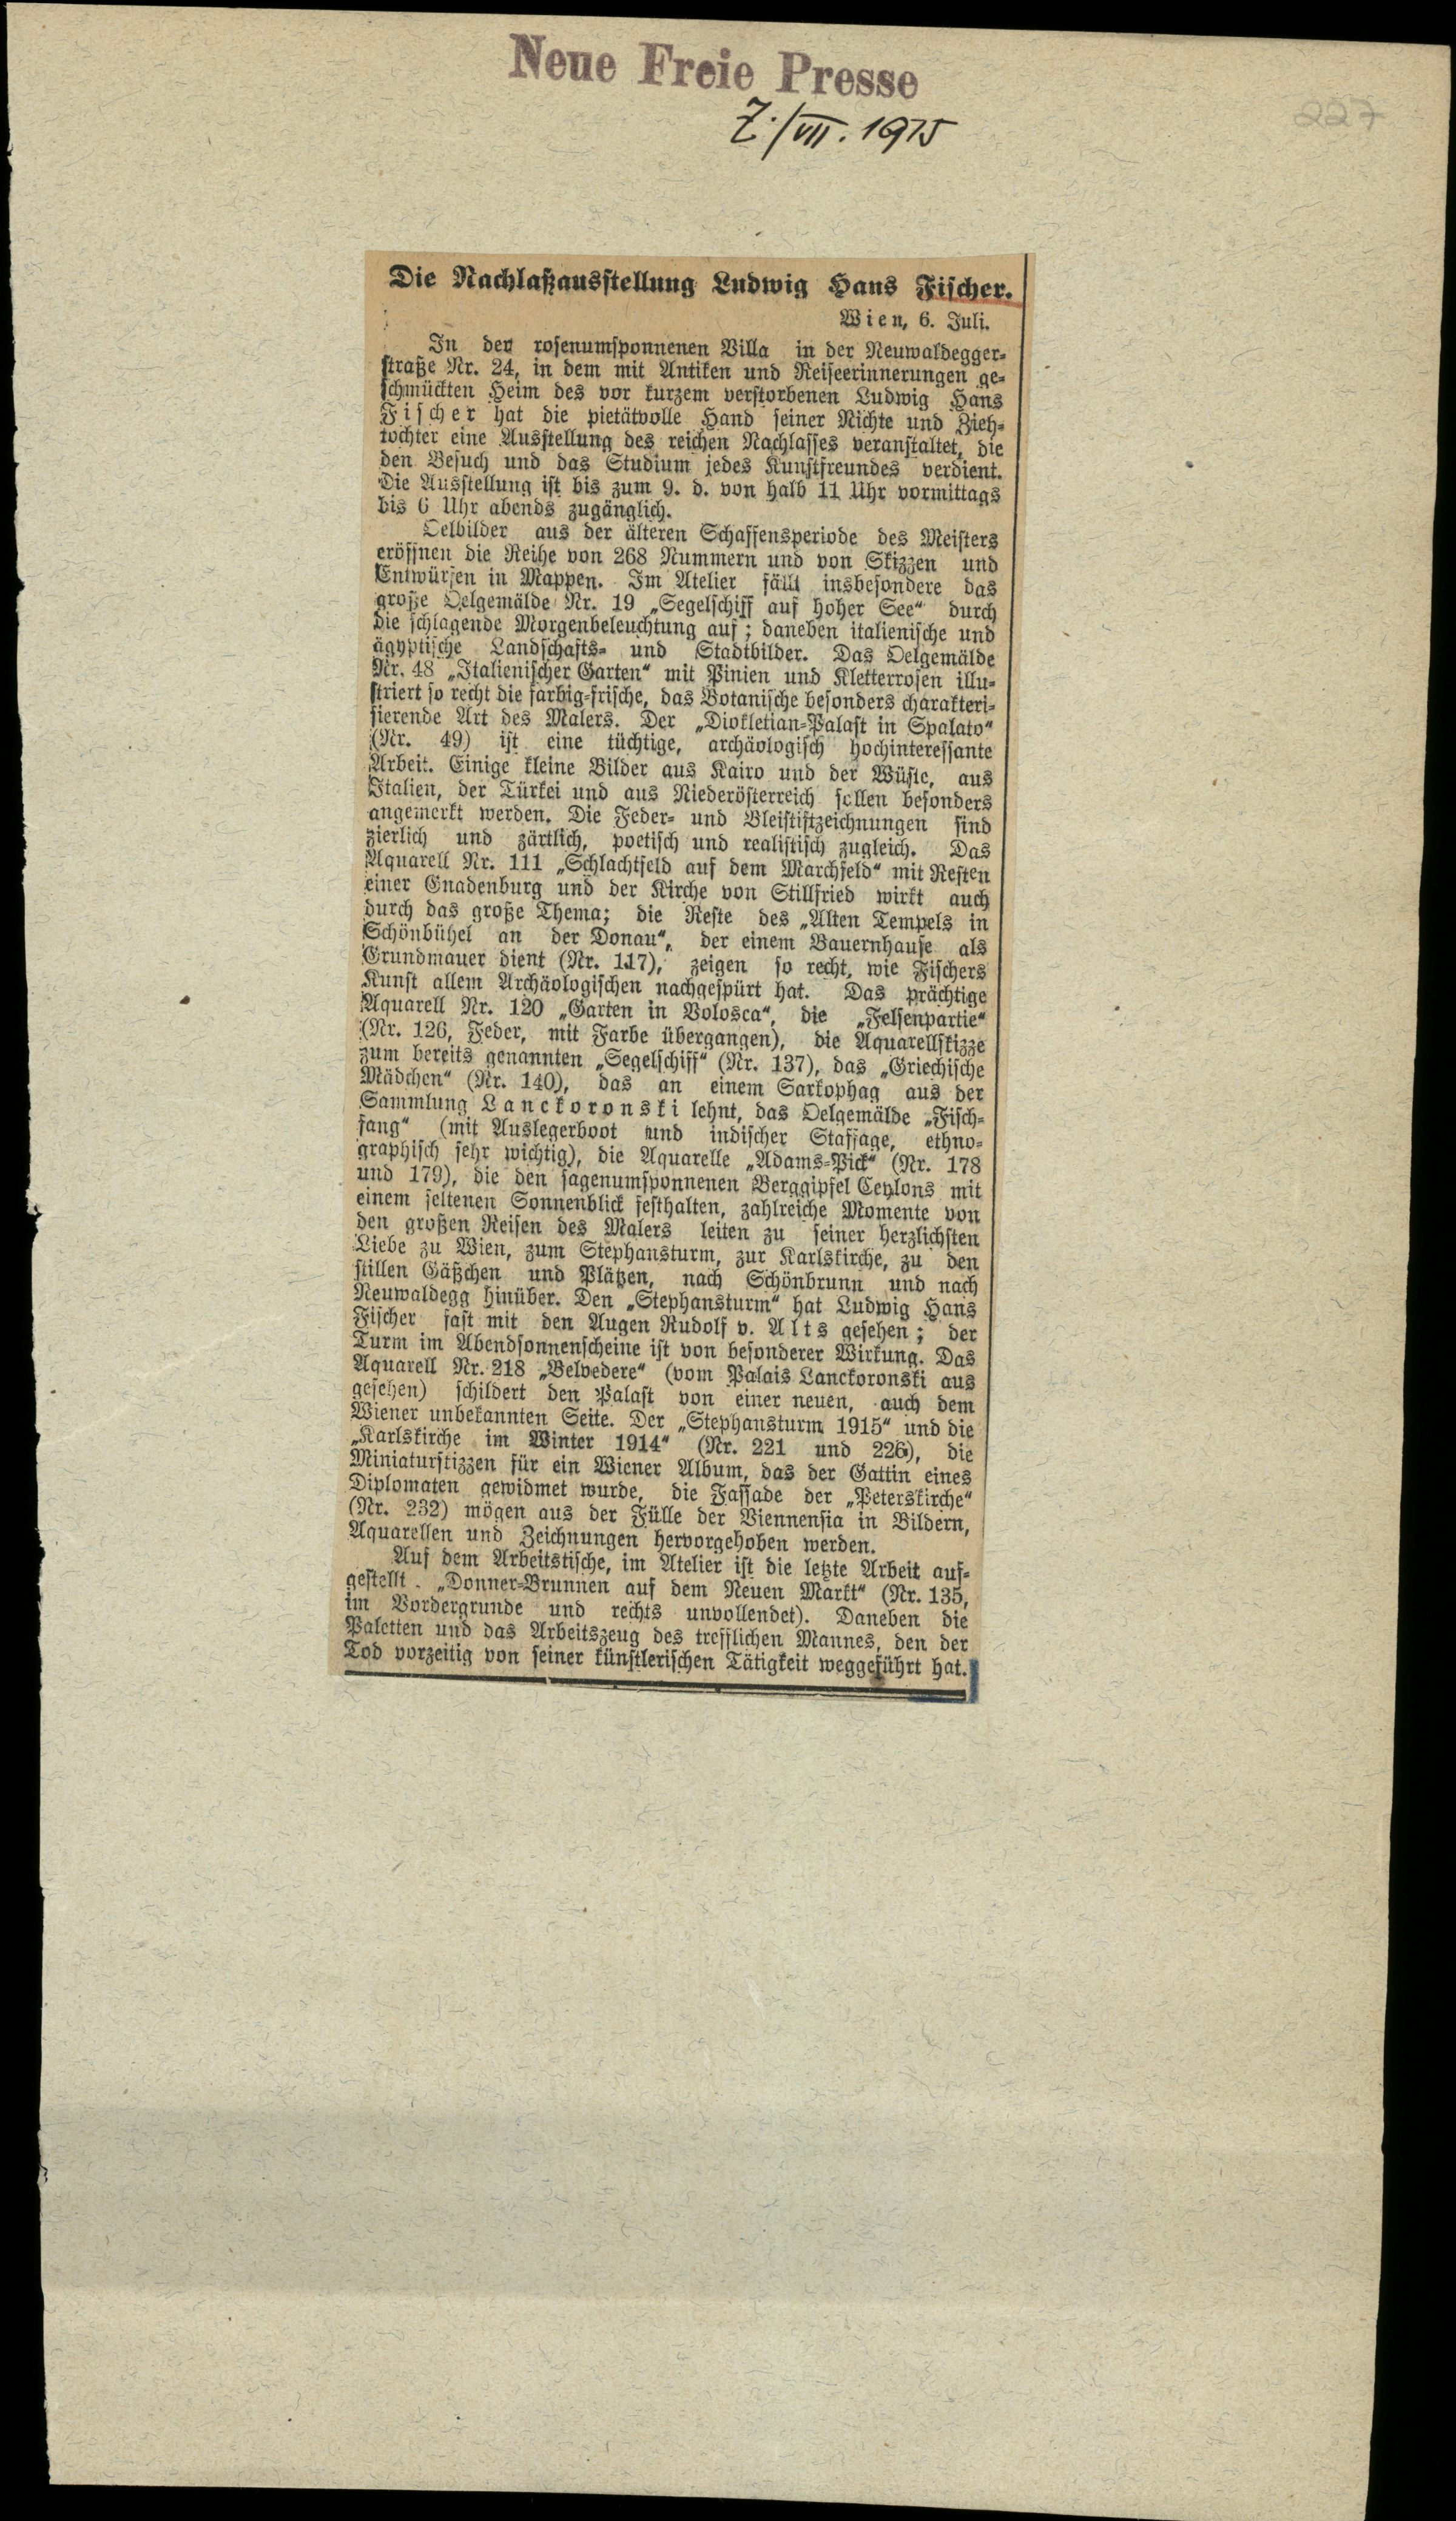 Neue Freie Presse
7./VII. 1915
227
Die Nachlaßausstellung Ludwig Hans Fischer.
Wien, 6. Juli.
In der rosenumsponnenen Villa in der Neuwaldegger-
straße Nr. 24, in dem mit Antiken und Reiseerinnerungen ge-
schmückten Heim des vor kurzem verstorbenen Ludwig Hans
Fischer hat die pietätvolle Hand seiner Nichte und Zieh-
tochter eine Ausstellung des reichen Nachlasses veranstaltet, die
den Besuch und das Studium jedes Kunstfreundes verdient.
Die Ausstellung ist bis zum 9. d. von halb 11 Uhr vormittags
bis 6 Uhr abends zugänglich.
Oelbilder aus der älteren Schaffensperiode des Meisters
eröffnen die Reihe von 268 Nummern und von Skizzen und
Entwürfen in Mappen. Im Atelier fällt insbesondere das
große Oelgemälde Nr. 19 „Segelschiff auf hoher See“ durch
die schlagende Morgenbeleuchtung auf; daneben italienische und
ägyptische Landschafts- und Stadtbilder. Das Oelgemälde
Nr. 48 „Italienischer Garten“ mit Pinien und Kletterrosen illu-
striert so recht die farbig-frische, das Botanische besonders charakteri-
sierende Art des Malers. Der „Diokletian-Palast in Spalato“
(Nr. 49) ist eine tüchtige, archäologisch hochinteressante
Arbeit. Einige kleine Bilder aus Kairo und der Wüste, aus
Italien, der Türkei und aus Niederösterreich sollen besonders
angemerkt werden. Die Feder- und Bleistiftzeichnungen sind
zierlich und zärtlich, poetisch und realistisch zugleich. Das
Aquarell Nr. 111 „Schlachtfeld auf dem Marchfeld“ mit Resten
einer Gnadenburg und der Kirche von Stillfried wirkt auch
durch das große Thema; die Reste des „Alten Tempels in
Schönbühel an der Donau“, der einem Bauernhause als
Grundmauer dient (Nr. 117), zeigen so recht, wie Fischers
Kunst allem Archäologischen nachgespürt hat. Das prächtige
Aquarell Nr. 120 „Garten in Volosca“, die „Felsenpartie“
(Nr. 126, Feder, mit Farbe übergangen), die Aquarellskizze
zum bereits genannten „Segelschiff“ (Nr. 137), das „Griechische
Mädchen“ (Nr. 140), das an einem Sarkophag aus der
Sammlung Lanckoronski lehnt, das Oelgemälde „Fisch-
fang“ (mit Auslegerboot und indischer Staffage, ethno-
graphisch sehr wichtig), die Aquarelle „Adams-Pick“ (Nr. 178
und 179), die den sagenumsponnenen Berggipfel Ceylons mit
einem seltenen Sonnenblick festhalten, zahlreiche Momente von
den großen Reisen des Malers leiten zu seiner herzlichsten
Liebe zu Wien, zum Stephansturm, zur Karlskirche, zu den
stillen Gäßchen und Plätzen, nach Schönbrunn und nach
Neuwaldegg hinüber. Den „Stephansturm“ hat Ludwig Hans
Fischer fast mit den Augen Rudolf v. Alts gesehen; der
Turm im Abendsonnenscheine ist von besonderer Wirkung. Das
Aquarell Nr. 218 „Belvedere“ (vom Palais Lanckoronski aus
gesehen) schildert den Palast von einer neuen, auch dem
Wiener unbekannten Seite. Der „Stephansturm 1915“ und die
„Karlskirche im Winter 1914“ (Nr. 221 und 226), die
Miniaturskizzen für ein Wiener Album, das der Gattin eines
Diplomaten gewidmet wurde, die Fassade der „Peterskirche“
(Nr. 232) mögen aus der Fülle der Viennensia in Bildern,
Aquarellen und Zeichnungen hervorgehoben werden.
Auf dem Arbeitstische, im Atelier ist die letzte Arbeit auf-
gestellt. „Donner-Brunnen auf dem Neuen Markt“ (Nr. 135,
im Vordergrunde und rechts unvollendet). Daneben die
Paletten und das Arbeitszeug des trefflichen Mannes, den der
Tod vorzeitig von seiner künstlerischen Tätigkeit weggeführt hat.